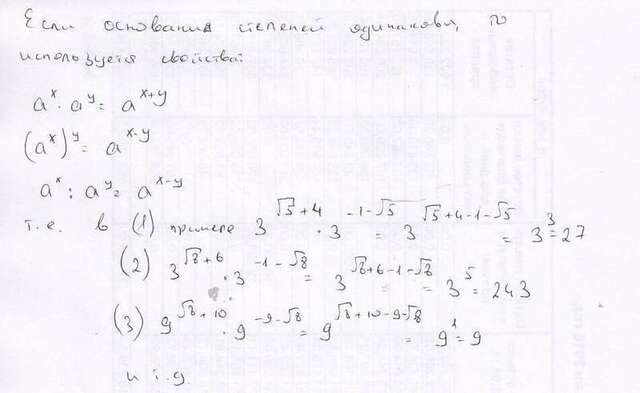 Если основания степеней одинаковы, то
используется свойства:
a^x · a^y = a^{x+y}
(a^x)^y = a^{x·y}
a^x : a^y = a^{x-y}
т.е. в (1) примере 3^{√5+4} · 3^{-1-√5} = 3^{√5+4-1-√5} = 3^3 = 27
(2) 3^{√8+6} · 3^{-1-√8} = 3^{√8+6-1-√8} = 3^5 = 243
(3) 9^{√8+10} · 9^{-9-√8} = 9^{√8+10-9-√8} = 9^1 = 9
и т.д.